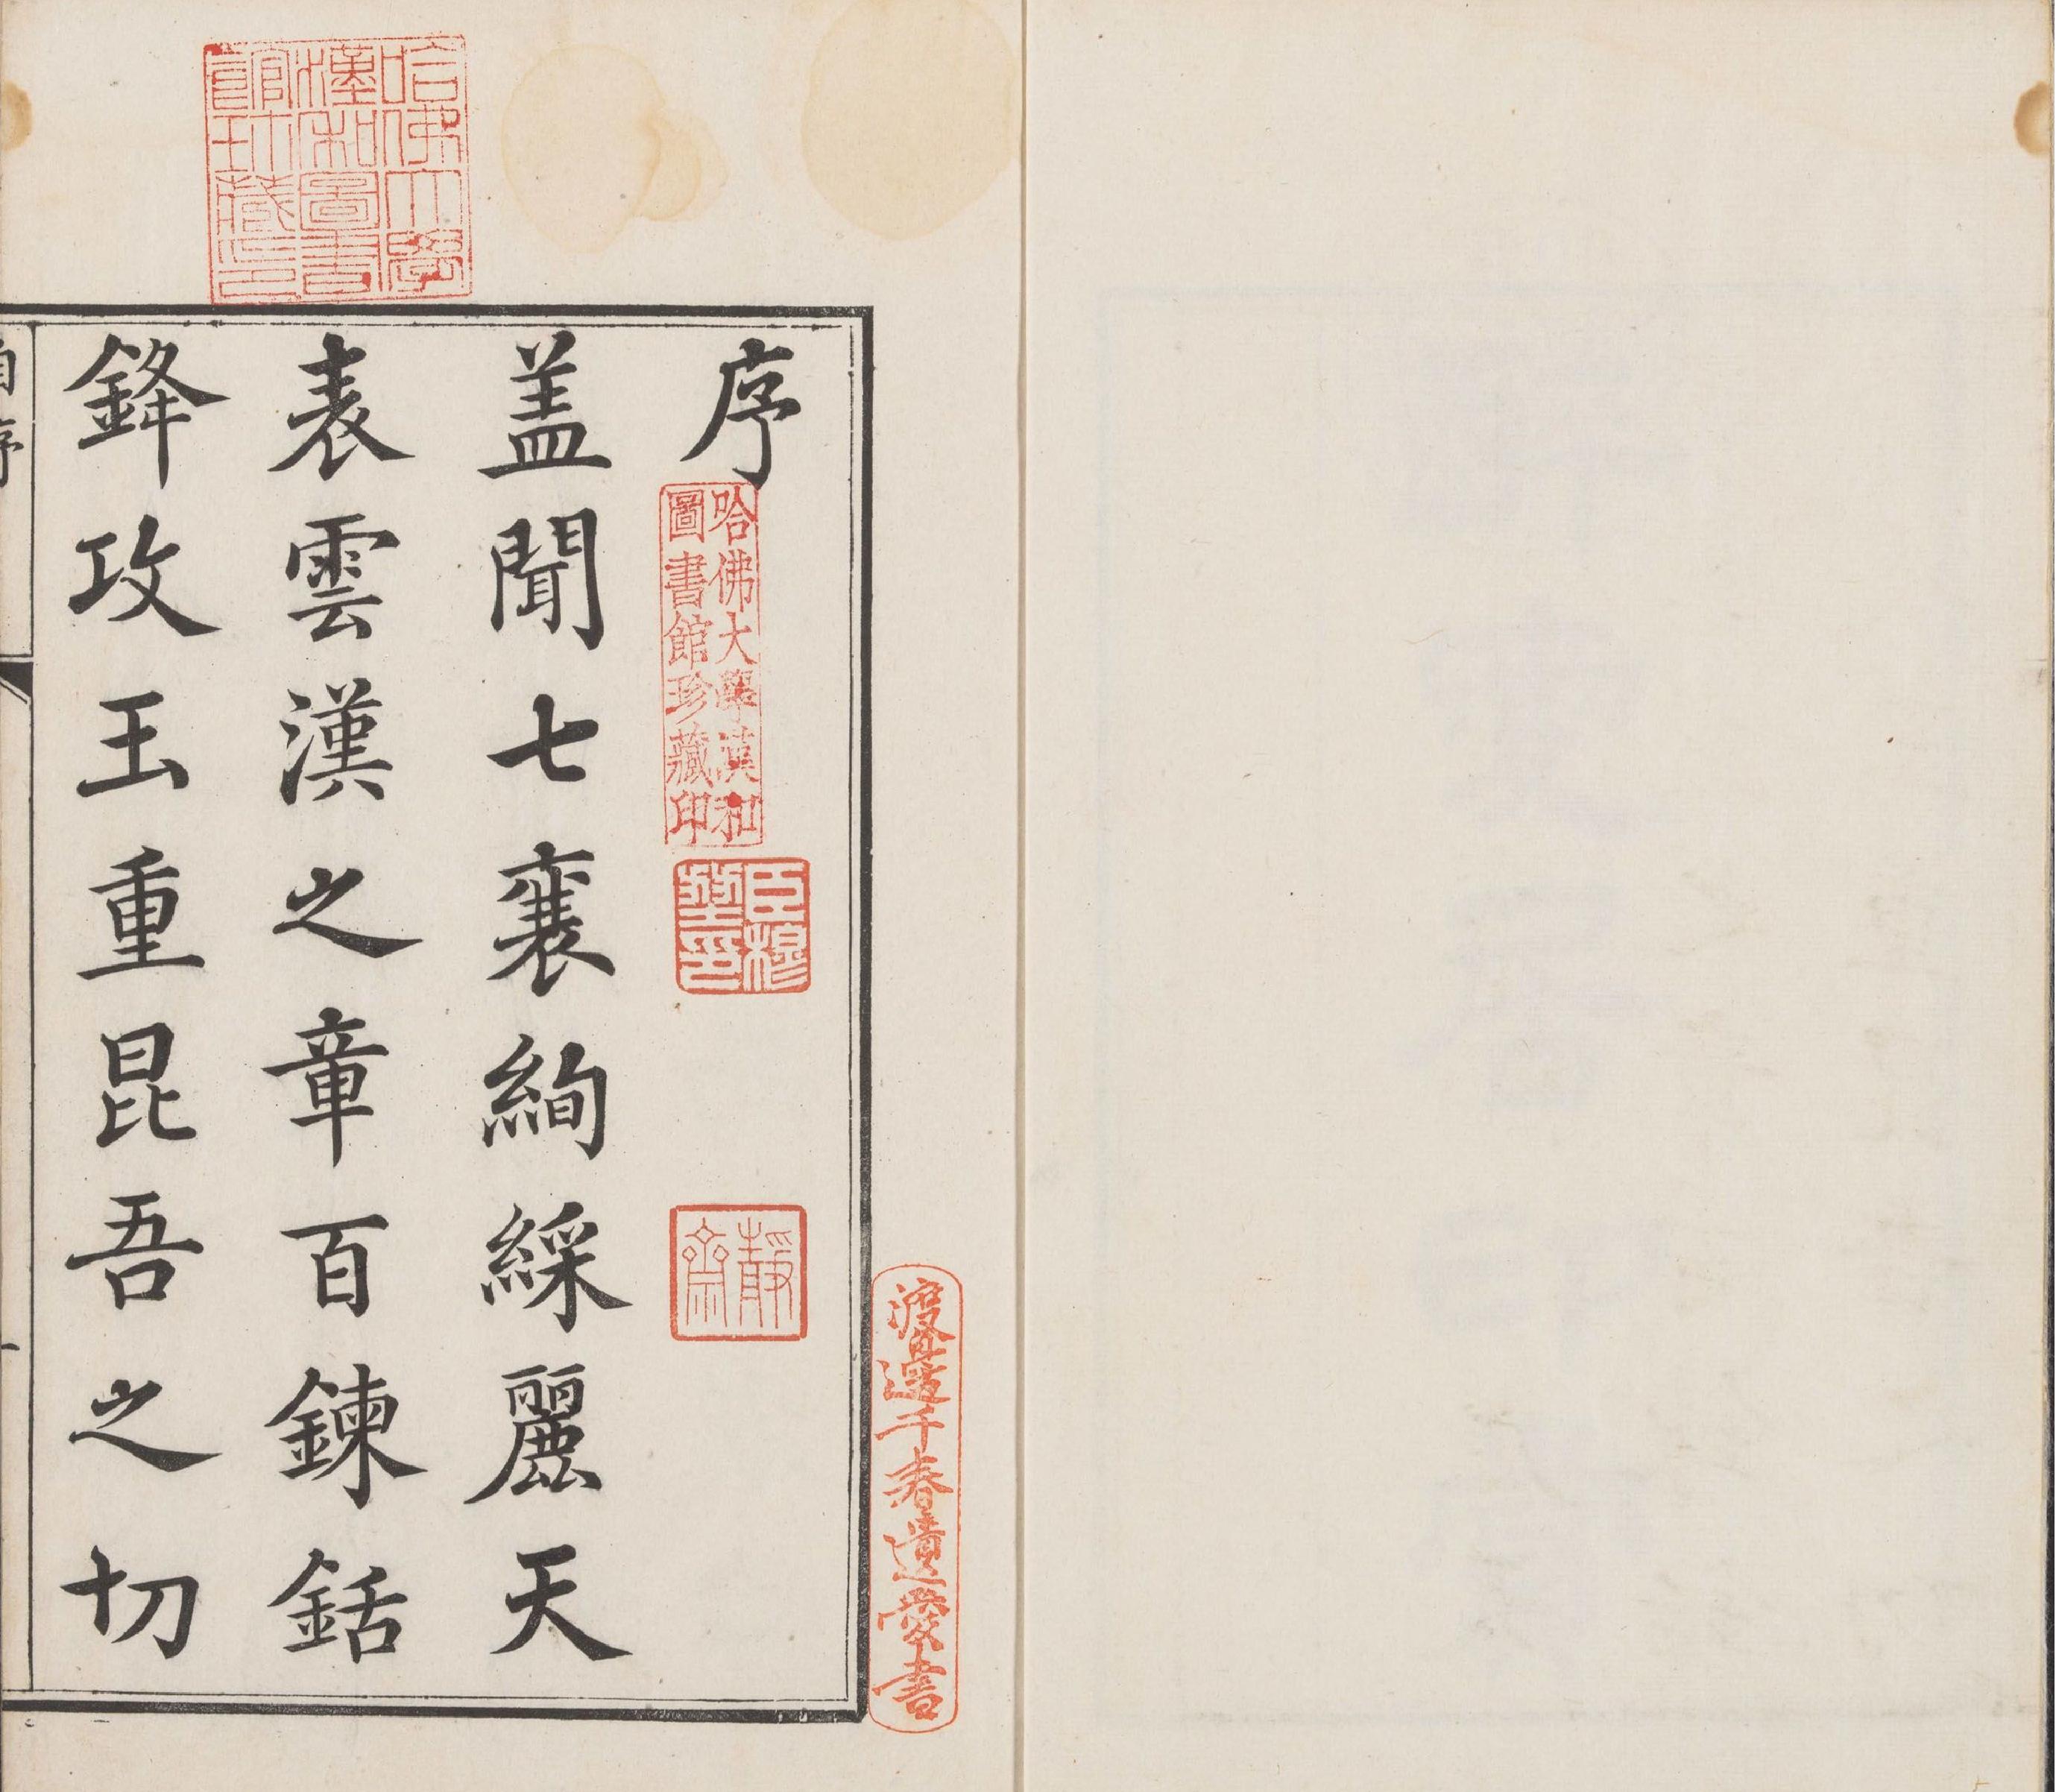 渡邊千春遺愛書
序
哈佛大學漢和
圖書館珍藏印
臣穆
印
靜
齋
盖聞七襄絢綵麗天
表雲漢之章百鍊銛
鋒攻玉重昆吾之切
哈佛大學
漢和圖書
館珎藏印
自序